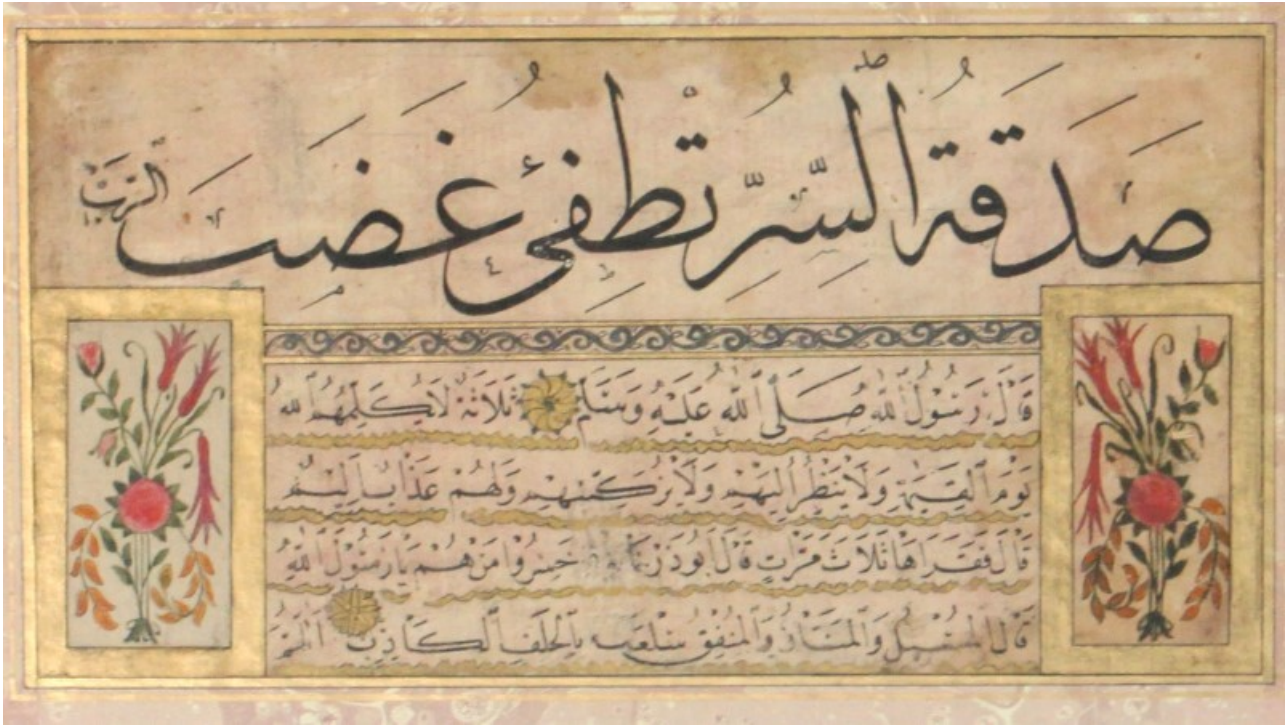 صَدَقَةُ السِّرِّ تُطْفِئُ غَضَبَ الرَّبِّ
قَالَ رَسُولُ اللهِ صَلَّى اللهُ عَلَيْهِ وَسَلَّمَ ثَلَاثَةٌ لَا يُكَلِّمُهُمُ الله
يَوْمَ الْقِيمَةِ وَلَا يَنْظُرُ اِلَيْهِمْ وَلَا يُزَكِّيهِمْ وَلَهُمْ عَذَابٌ اَلِيمٌ
قَالَ فَقَرَاَهَا ثَلَاثَ مَرَّاتٍ قَالَ اَبُو ذَرٍّ خَسِرُوا مَنْ هُمْ يَا رَسُولَ اللهِ
قَالَ الْمُسْبِلُ وَالْمَنَّانُ وَالْمُنْفِقُ سِلْعَتِهِ بِالْحَلْفِ الْكَاذِبِ